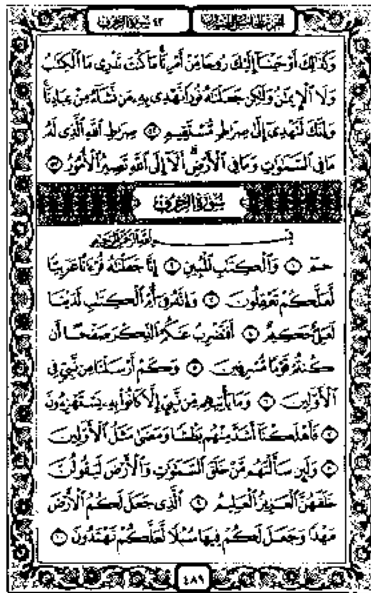 الجزء الخامس والعشرون ٤٣ سورة الزخرف
وَكَذَٰلِكَ أَوْحَيْنَا إِلَيْكَ رُوحًا مِّنْ أَمْرِنَا مَا كُنتَ تَدْرِي مَا الْكِتَٰبُ
وَلَا الْإِيمَٰنُ وَلَٰكِن جَعَلْنَٰهُ نُورًا نَّهْدِي بِهِ مَن نَّشَاءُ مِنْ عِبَادِنَا
وَإِنَّكَ لَتَهْدِي إِلَىٰ صِرَٰطٍ مُّسْتَقِيمٍ ٥٢ صِرَٰطِ اللَّهِ الَّذِي لَهُ
مَا فِي السَّمَٰوَٰتِ وَمَا فِي الْأَرْضِ أَلَا إِلَى اللَّهِ تَصِيرُ الْأُمُورُ ٥٣
سُورَةُ الزُّخْرُفِ
بِسْمِ اللَّهِ الرَّحْمَٰنِ الرَّحِيمِ
حمٓ ١ وَالْكِتَٰبِ الْمُبِينِ ٢ إِنَّا جَعَلْنَٰهُ قُرْءَٰنًا عَرَبِيًّا
لَّعَلَّكُمْ تَعْقِلُونَ ٣ وَإِنَّهُ فِي أُمِّ الْكِتَٰبِ لَدَيْنَا
لَعَلِيٌّ حَكِيمٌ ٤ أَفَنَضْرِبُ عَنكُمُ الذِّكْرَ صَفْحًا أَن
كُنتُمْ قَوْمًا مُّسْرِفِينَ ٥ وَكَمْ أَرْسَلْنَا مِن نَّبِيٍّ فِي
الْأَوَّلِينَ ٦ وَمَا يَأْتِيهِم مِّن نَّبِيٍّ إِلَّا كَانُوا بِهِ يَسْتَهْزِءُونَ
٧ فَأَهْلَكْنَا أَشَدَّ مِنْهُم بَطْشًا وَمَضَىٰ مَثَلُ الْأَوَّلِينَ
٨ وَلَئِن سَأَلْتَهُم مَّنْ خَلَقَ السَّمَٰوَٰتِ وَالْأَرْضَ لَيَقُولُنَّ
خَلَقَهُنَّ الْعَزِيزُ الْعَلِيمُ ٩ الَّذِي جَعَلَ لَكُمُ الْأَرْضَ
مَهْدًا وَجَعَلَ لَكُمْ فِيهَا سُبُلًا لَّعَلَّكُمْ تَهْتَدُونَ ١٠
٤٨٩